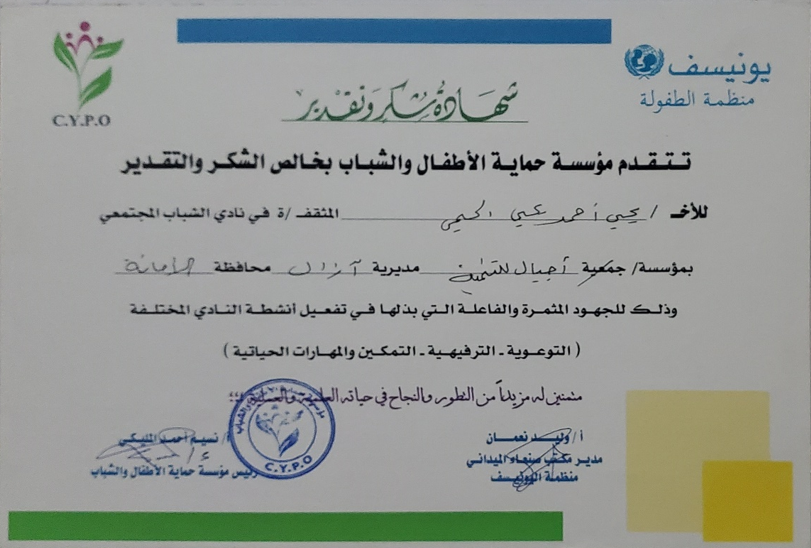 C.Y.P.O
يونيسف
منظمة الطفولة
شهادة شكر وتقدير
تتقدم مؤسسة حماية الأطفال والشباب بخالص الشكر والتقدير
للأخ / يحيى أحمد يحيى الحيمي المثقف/ة في نادي الشباب المجتمعي
بمؤسسة/ جمعية أجيال للتنمية مديرية آزال محافظة الأمانة
وذلك للجهود المثمرة والفاعلة التي بذلها في تفعيل أنشطة النادي المختلفة
( التوعوية - الترفيهية - التمكين والمهارات الحياتية )
متمنين له مزيداً من التطور والنجاح في حياته العلمية والعملية ،،،
أ/ وليد نعمان
مدير مكتب صنعاء الميداني
منظمة اليونيسف
أ/ نسيم أحمد المليكي
رئيس مؤسسة حماية الأطفال والشباب
C.Y.P.O